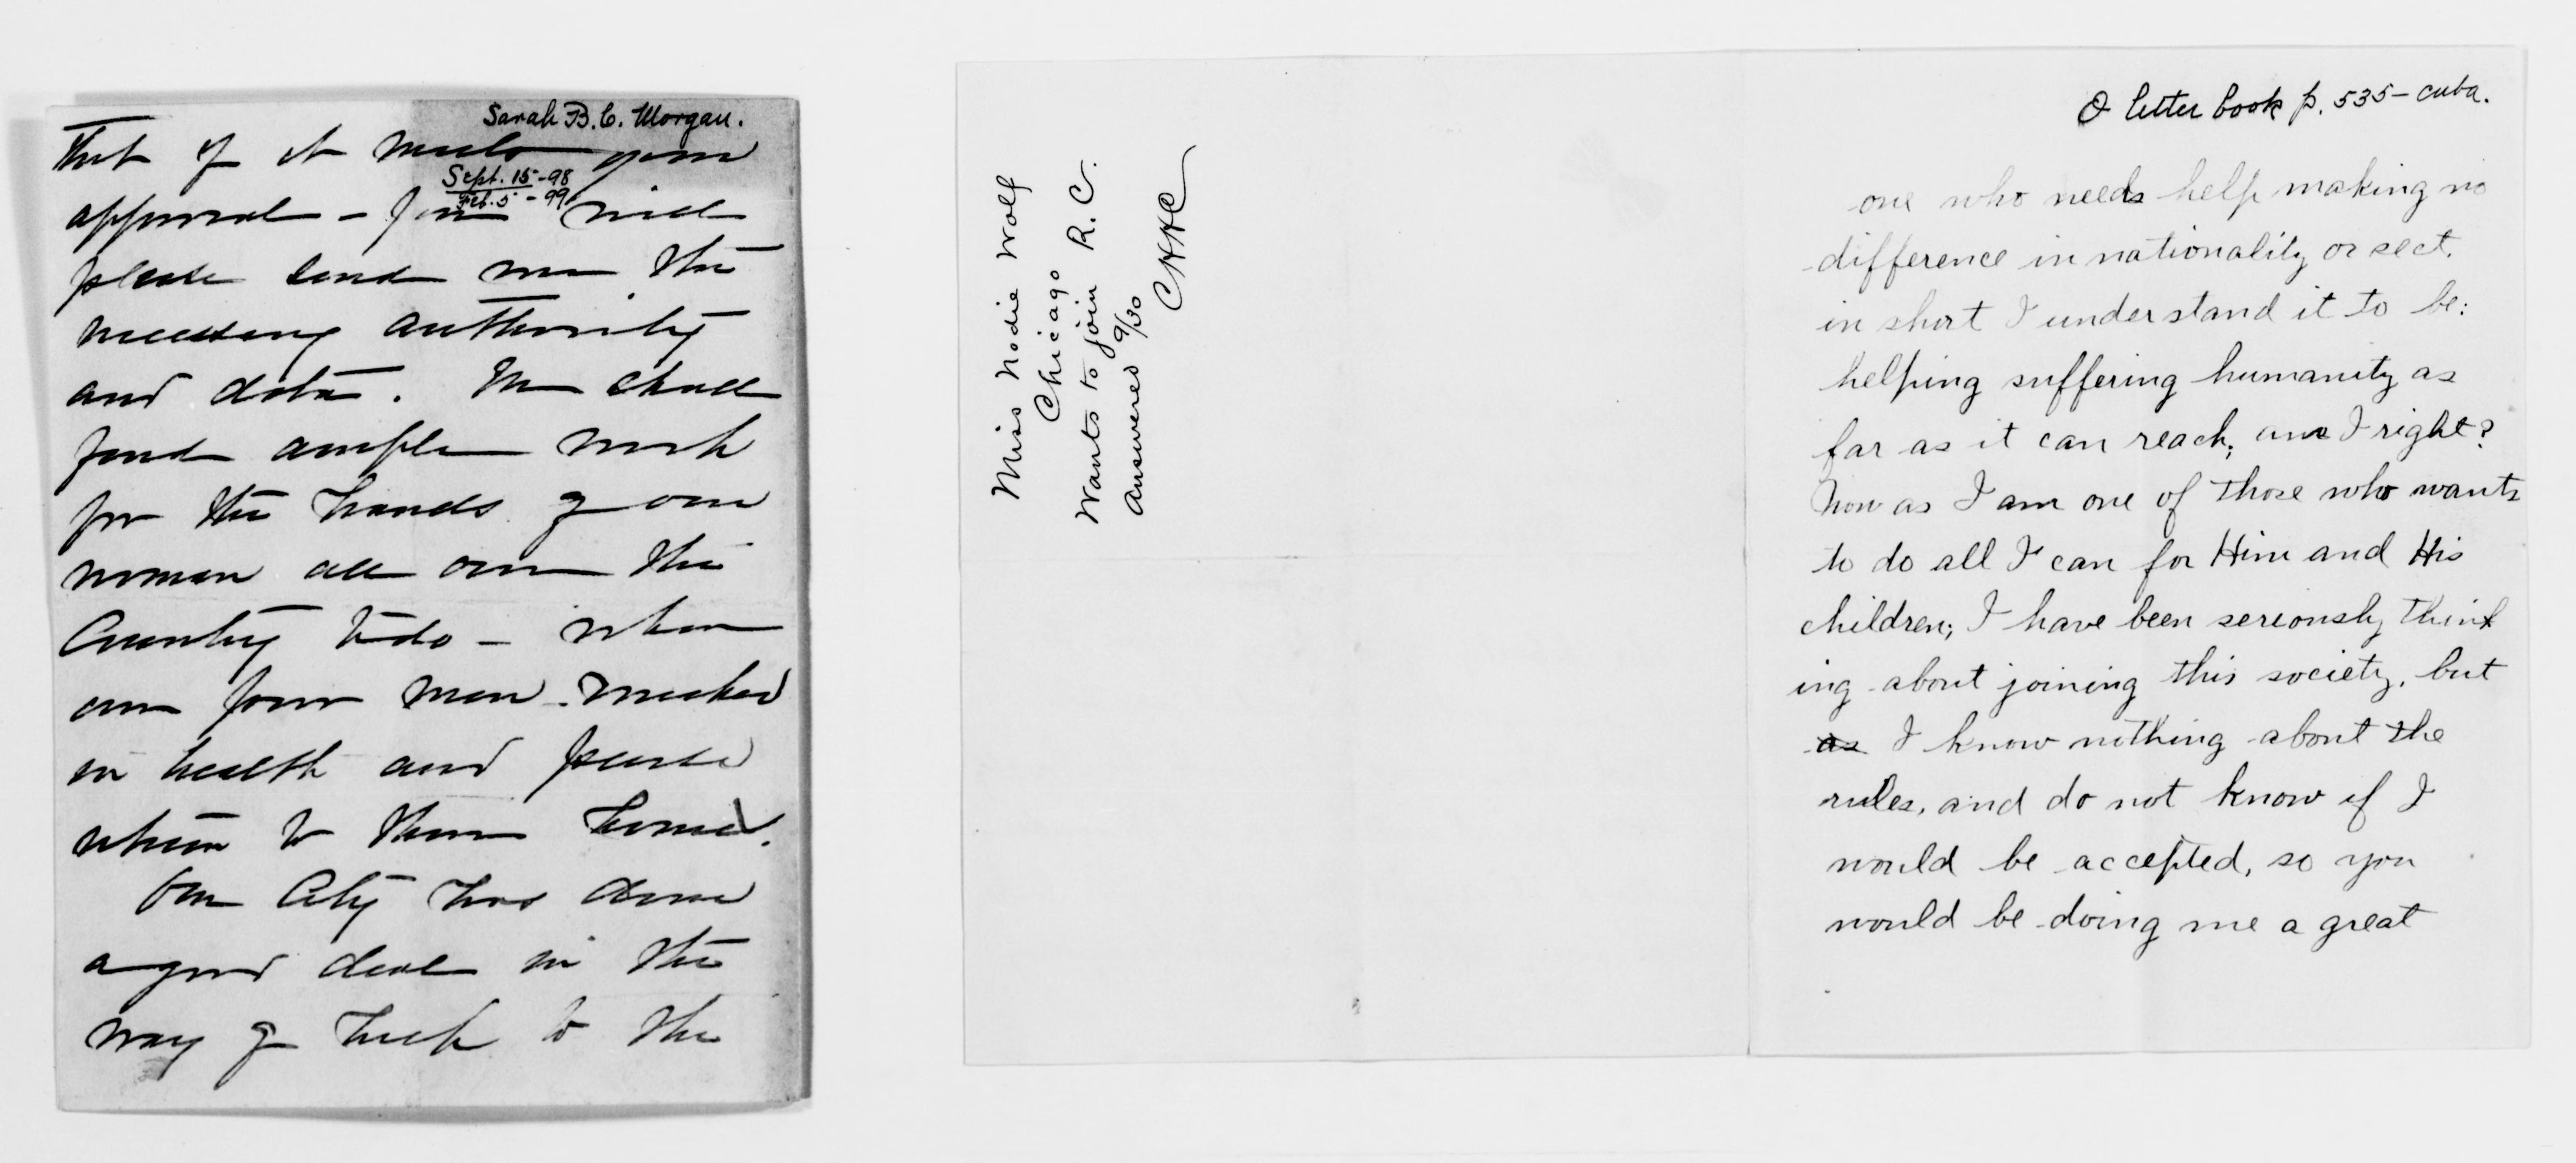 Sarah B. C. Morgan.
that if it meets your
Sept. 15-98
Feb. 5-99
approval - you will
please send me the
necessary authority
and data. We shall
find ample work
for the hands of our
women all over this
Country to do - when
our poor men wrecked
in health and purse
return to their homes.
Our City has done
a good deal in the
way of help to the
Miss Nodie Wolf
Chicago
Wants to join R. C.
Answered 9/30
CHHC
O letter book p. 535 - cuba.
one who needs help making no
difference in nationality or sect.
in short I understand it to be:
helping suffering humanity as
far as it can reach; am I right?
Now as I am one of those who wants
to do all I can for Him and His
children; I have been seriously think
ing about joining this society, but
as I know nothing about the
rules, and do not know if I
would be accepted, so you
would be doing me a great